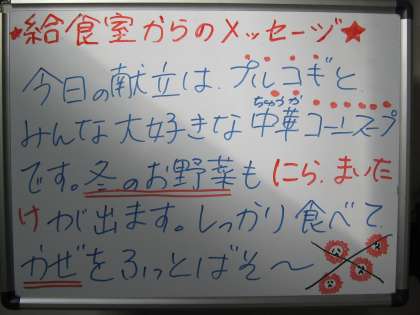 ★給食室からのメッセージ★
今日の献立は、プルコギと
みんな大好きな中華コーンスープ
ちゅうか
です。冬のお野菜もにら、まいた
けが出ます。しっかり食べて
かぜをふっとばそ〜